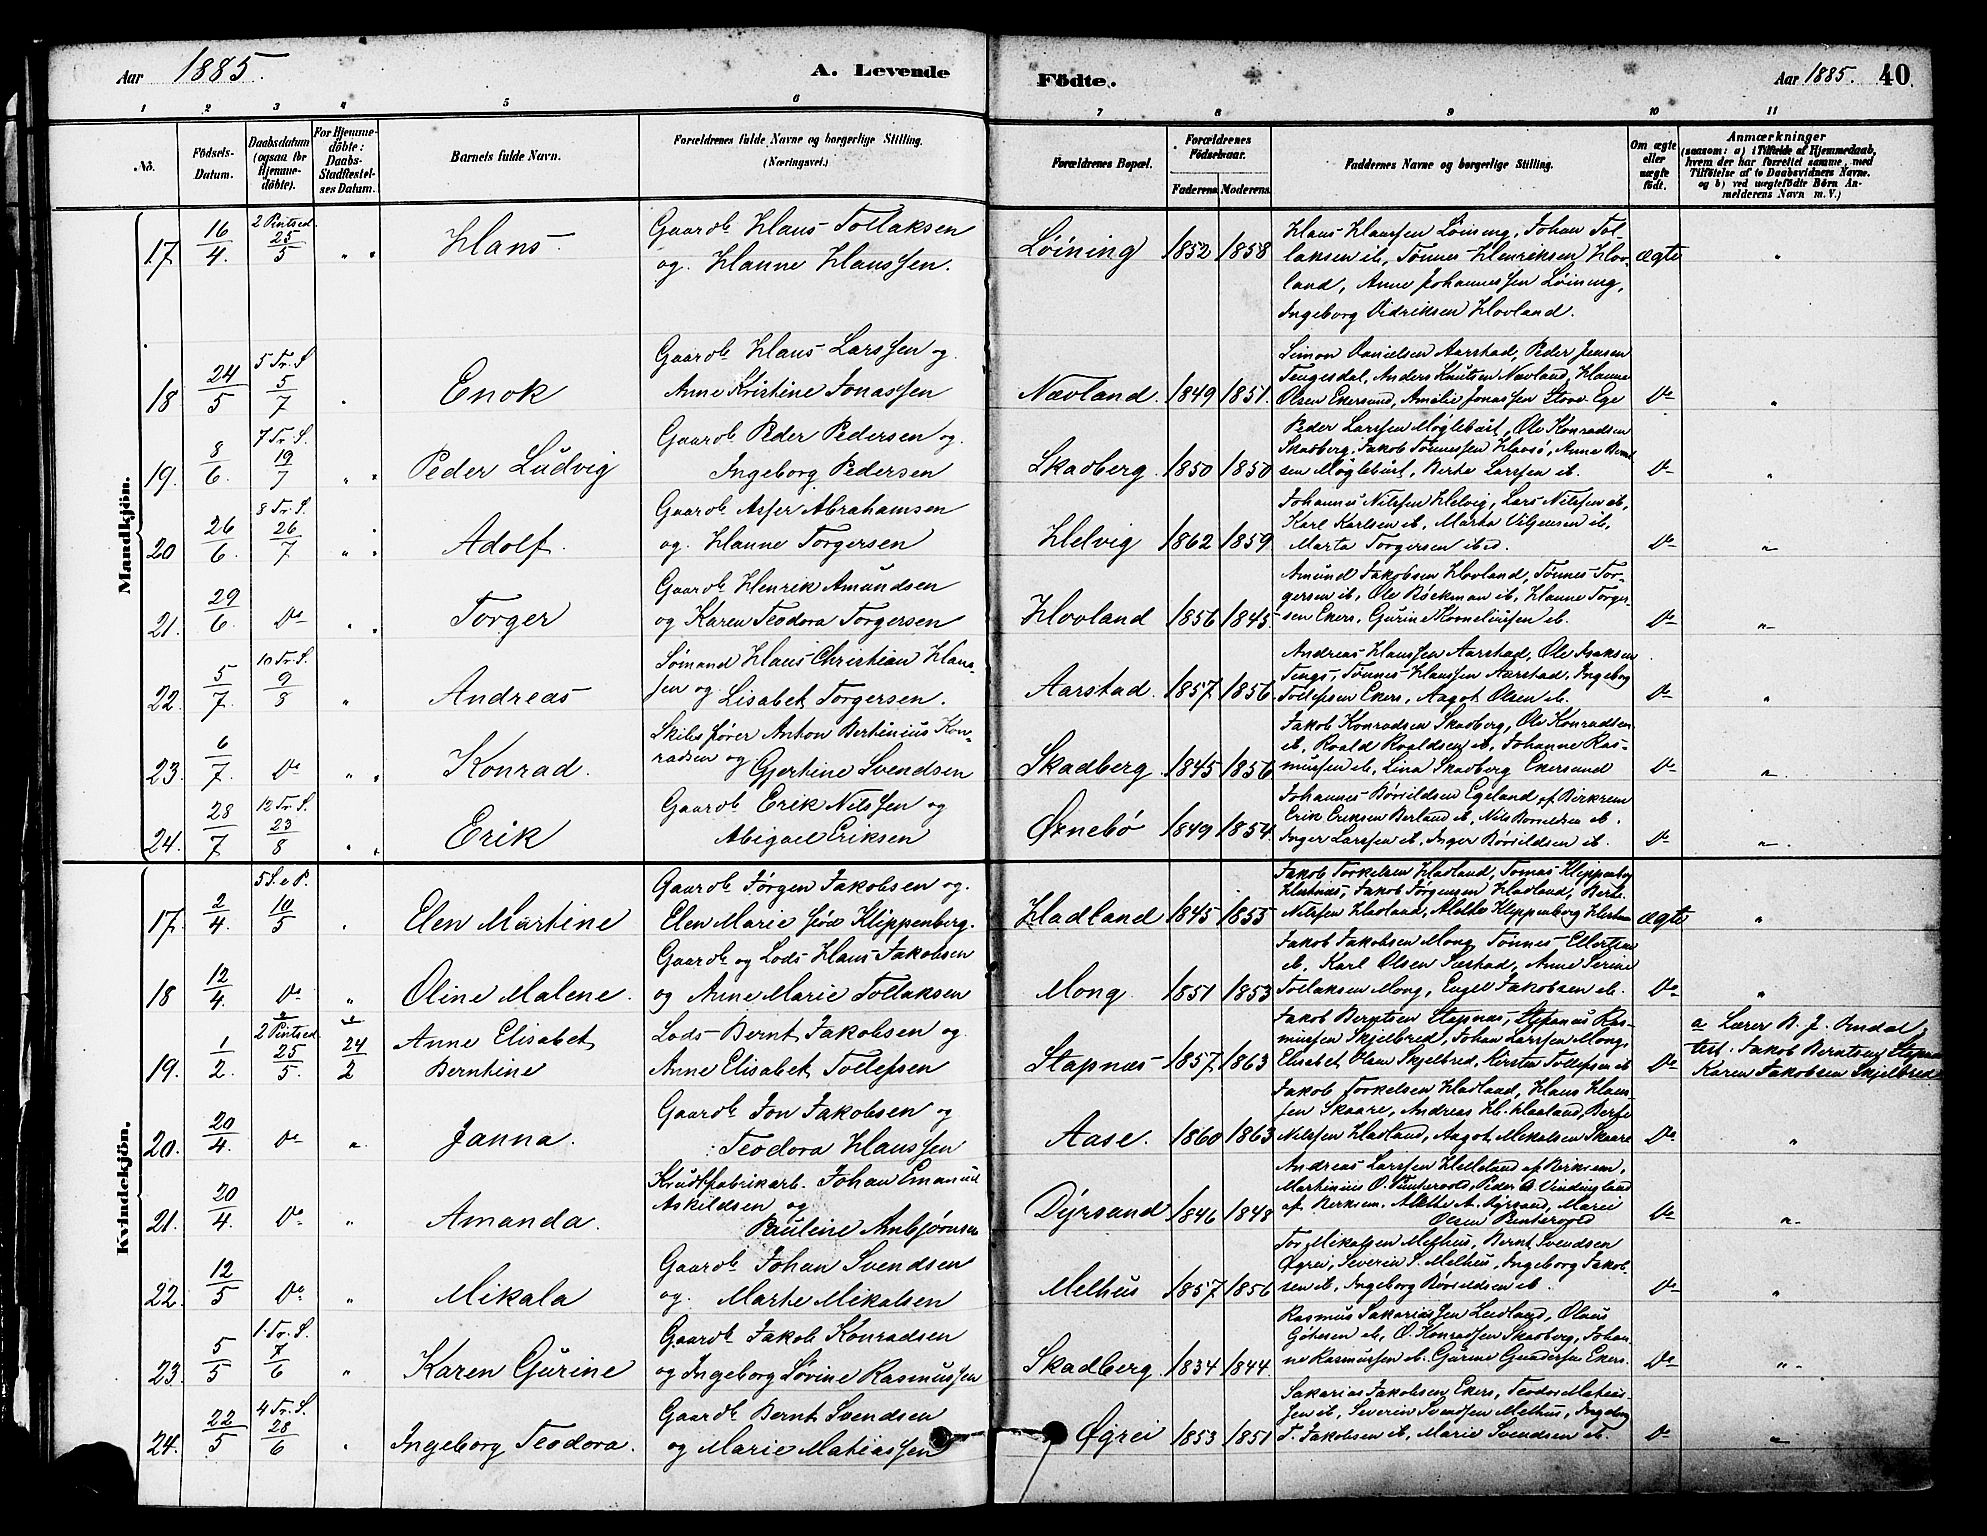 Aar 1885. A. Levende
Födte. Aar 1885. 40.
1 2 3 4 5 6 7 8 9 10 11
No.
Födsels-Datum.
Daabsdatum (ogsaa for Hjemme-döbte).
For Hjemme-döbte: Daabs-Stadfæstelses Datum.
Barnets fulde Navn.
Forældrenes fulde Navne og borgerlige Stilling.
(Næringsvei.)
Forældrenes Bopæl.
Forældrenes Födselsaar.
Faderens. Moderens.
Faddernes Navne og borgerlige Stilling.
Om ægte eller uægte födt.
Anmærkninger
(saasom: a) i Tilfælde af Hjemmedaab, hvem der har forrettet samme, med Tilföielse af to Daabsvidners Navne. og b) ved uægtefödte Börn Anmelderens Navn m. V.)
Mandkjön.
17. 16/4. 2 Pintsed. 25/5 " " Hans Gaardb. Hans Tollaksen
og Hanne Hanssen. Löining 1852 1858
Hans Hanssen Löining, Johan Tol-
laksen ib, Tönnes Henriksen Hov-
land, Anne Johannessen Löining,
Ingeborg Didriksen Hovland. Ægte "
18 24/5 5 Tr. S. 5/7 " Enok Gaardb. Hans Larssen og
Anne Kristine Jonassen Nævland. 1849 1851.
Simon Danielsen Aarstad, Peder Jensen
Tengesdal, Anders Knutsen Nævland, Hanna
Olsen Ekersund, Amalie Jonassen Store Ege Do "
19. 8/6. 7 Tr. S. 19/7 " " Peder Ludvig Gaardb. Peder Pedersen og
Ingeborg Pedersen Skadberg. 1850 1850
Peder Larssen Möglebust, Ole Konradsen
Skadberg, Jakob Tönnessen Havsö, Anne Bernt-
sen Möglebust, Berte Larssen ib. Do "
20 26/6. 8 Tr. S. 26/7 " " Adolf. Gaardb. Asser Abrahamsen
og Hanne Torgersen Helvig 1862 1859
Johannes Nilssen Helvig, Lars Nilssen ib,
Karl Karlsen ib, Marta Viljensen ib,
Marta Torgersen ibid. Do "
21. 29/6 Do " " Torger Gaardb. Henrik Amundsen
og Karen Teodora Torgersen Hovland 1856 1845.
Amund Jakobsen Hovland, Tönnes Tor-
gersen ib, Ole Böckman ib, Hanne Torger-
sen Ekers, Gurine Korneliussen ib. Do "
22. 5/7. 10 Tr. S. 9/8 " Andreas Sömand Hans Christian Hans-
sen og Lisabet Torgersen. Aarstad. 1857. 1856
Andreas Hanssen Aarstad, Ole Isaksen
Tengs, Tönnes Hanssen Aarstad, Ingeborg
Tollefsen Ekers, Aagot Olsen ib. Do "
23. 6/7. Do " " Konrad. Skibsförer Anton Bertinius Kon-
radsen og Gjertine Svendsen Skadberg 1845 1856
Jakob Konradsen Skadberg, Ole Konradsen
ib, Roald Roaldsen ib, Johanne Ras-
mussen ib, Lina Skadberg Ekersund Do "
24. 28/7 12 Tr. S. 23/8 " " Erik Gaardb. Erik Nilssen og
Abigael Eriksen Ørnebö 1849 1854.
Johannes Börildsen Egeland af Birkrem
Erik Eriksen Berland ib, Nils Börildsen ib.
Inger Larssen ib, Inger Börildsen ib. Do "
Kvindekjön.
17. 2/4. 5 S. e P. 10/5 " Elen Martine Gaardb. Jörgen Jakobsen og
Elen Marie Klippenberg. Hadland 1845 1855
Jakob Torkelsen Hadland, Tomas Klippenberg
Hestnæs, Jakob Jörgensen Hadland, Berte
Nilssen Hadland, Malthe Klippenberg Ægte "
18 12/4. Do " Oline Malene. Gaardb. og Lods Hans Jakobsen
og Anne Marie Tollaksen Mong. 1851 1853
Jakob Jakobsen Mong, Tönnes Ellertsen
ib, Karl Olsen Sæstad, Anne Serine
Tollaksen Mong, Engel Jakobsen ib. Do "
19. 1/2. 2 Pintsed. 25/5. 24/2 Anne Elisabet
Berntine Lods Bernt Jakobsen og
Anne Elisabet Tollefsen Stapnæs 1857 1863
Jakob Berntsen Stapnæs, Stefanus Ras-
mussen Skjelbred, Johan Larssen Mong,
Elisabet Olsen Skjelbred, Kirsten Tollefsen ib Do
a Lærer B. J. Omdal,
test. Jakob Berntsen Stapnæs
Karen Jakobsen Skjelbred
20. 20/4. Do " Janna. Gaardb. Jon Jakobsen og
Teodora Hanssen Aase. 1860 1863
Jakob Torkelsen Hadland, Hans Hans-
sen Skaare, Andreas H. Hadland, Berte
Nilssen Hadland, Aagot Mikalsen Skaare Do "
21. 20/4. Do " Amanda. Krudtfabrikarb. Johan Emanuel
Askildsen og
Pauline Anbjörnsen Dyrsand 1846 1848
Andreas Larssen Helleland af Birkrem,
Martinius O. Puntervold, Peder A Vindingland
af Birkrem, Malthe A. Dyrsand, Marie
Olsen Puntervold Do "
22. 12/5 Do " Mikala Gaardb. Johan Svendsen
og Marte Mikalsen Melhus 1857 1856
Tor Mikalsen Melhus, Bernt Svendsen
Øgrei, Severin S. Melhus, Ingeborg Jakob-
sen ib, Ingeborg Börildsen ib. Do "
23. 5/5 1. Tr. S. 7/6 " Karen Gurine Gaardb. Jakob Konradsen
og Ingeborg Sörine Rasmussen Skadberg. 1834 1844.
Rasmus Sakariassen Leidland, Olaus
Götesen ib, O. Konradsen Skadberg, Johan-
ne Rasmussen ib. Gurine Gundersen Ekers. Do "
24. 22/5 4 Tr. S. 28/6 " Ingeborg Teodora. Gaardb. Bernt Svendsen
og Marie Matiassen Øgrei 1853 1851
Sakarias Jakobsen Ekers, Teodor Matias-
sen ib, Severin Svendsen Melhus, Ingeborg
T. Jakobsen ib, Marie Svendsen ib. Do "